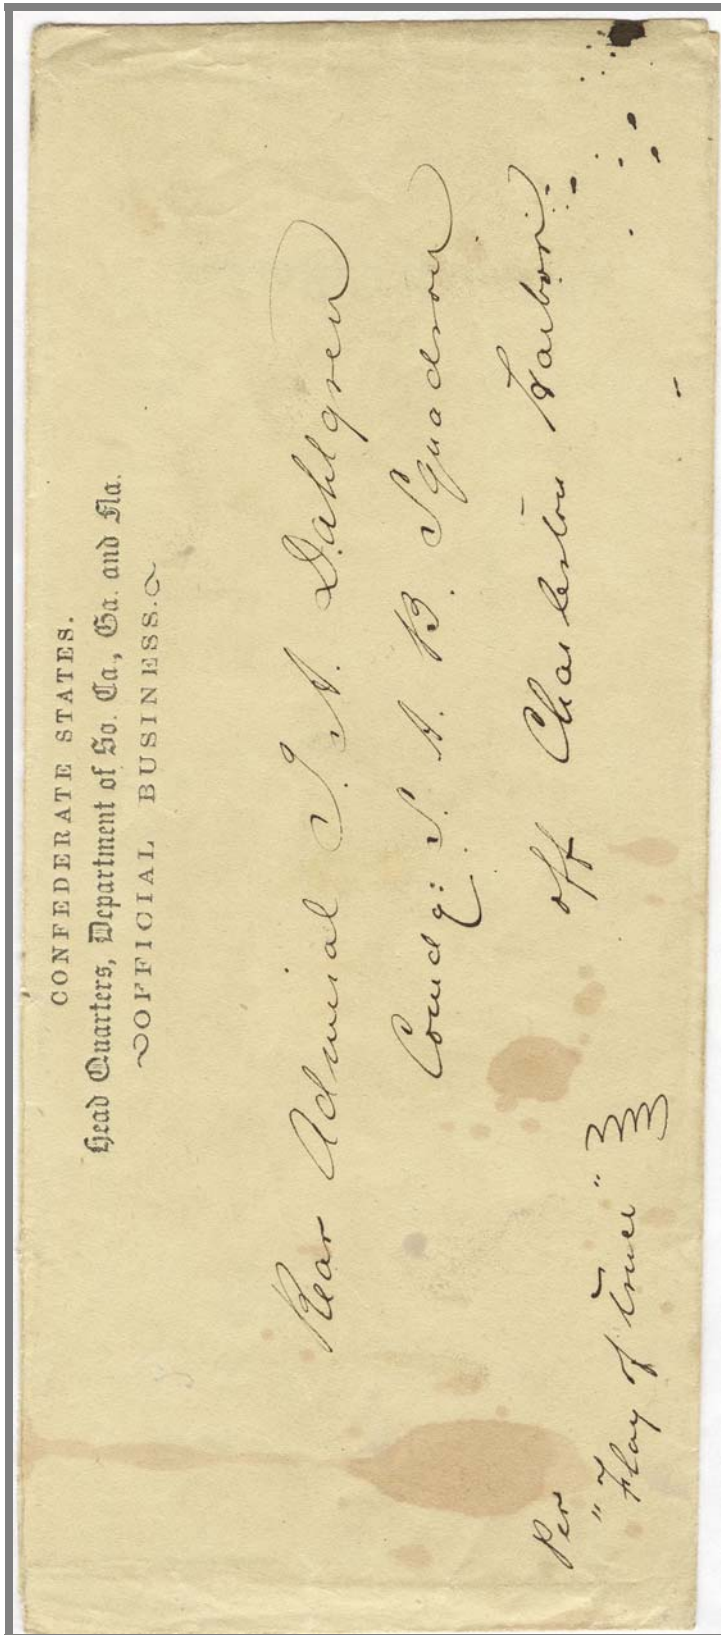 CONFEDERATE STATES.
Head Quarters, Department of So. Ca., Ga. and Fla.
OFFICIAL BUSINESS.
Rear Admiral J. A. Dahlgren
Comdg: S. A. B. Squadron
off Charleston Harbor.
Per
"Flag of truce"